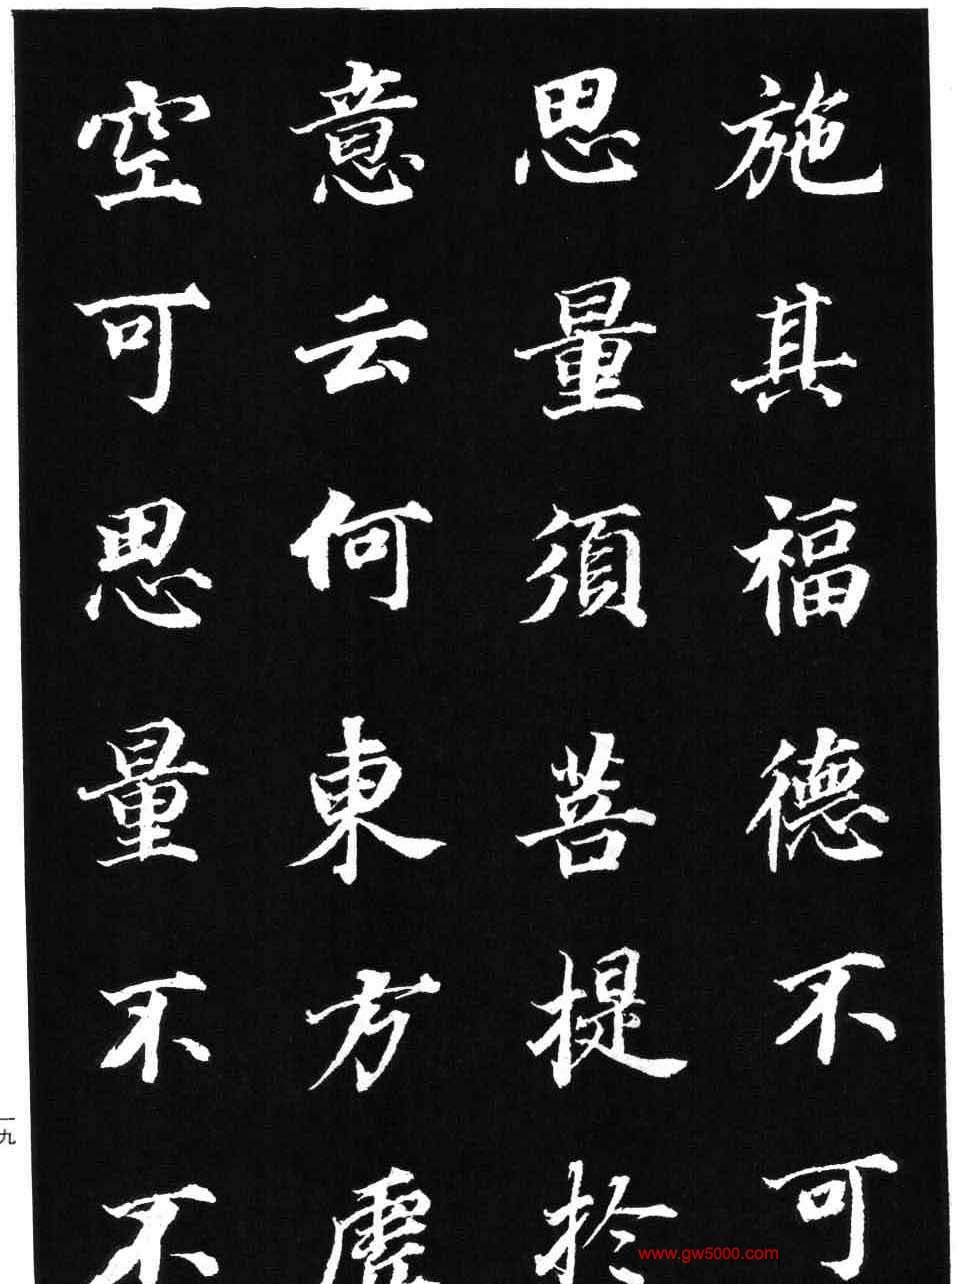 施其福德不可
思量須菩提於
意云何東方虛
空可思量不不
一九
www.gw5000.com